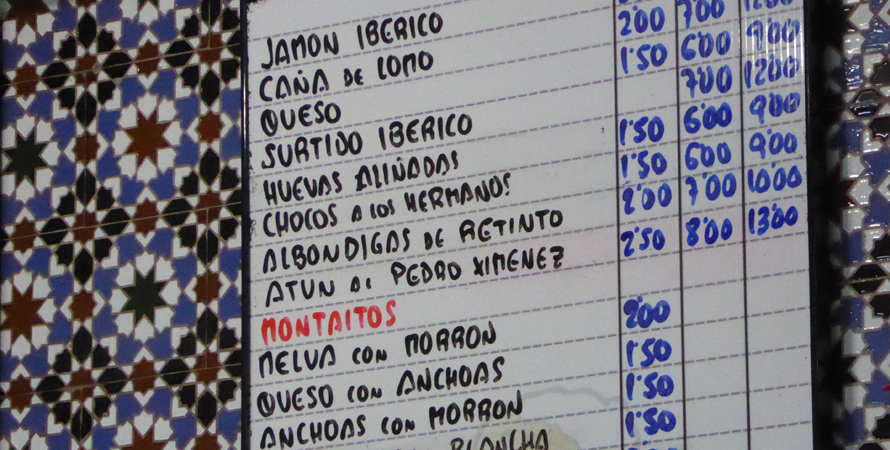 JAMON IBERICO
CAÑA DE LOMO 2'00 7'00
QUESO 1'50 6'00 9'00
SURTIDO IBERICO 7'00 12'00
HUEVAS ALIÑADAS 1'50 6'00 9'00
CHOCOS A LOS HERMANOS 1'50 6'00 9'00
ALBONDIGAS DE RETINTO 2'00 7'00 10'00
ATUN AL PEDRO XIMENEZ 2'50 8'00 13'00
MONTAITOS
MELVA CON MORRON 2'00
QUESO CON ANCHOAS 1'50
ANCHOAS CON MORRON 1'50
PLANCHA 1'50